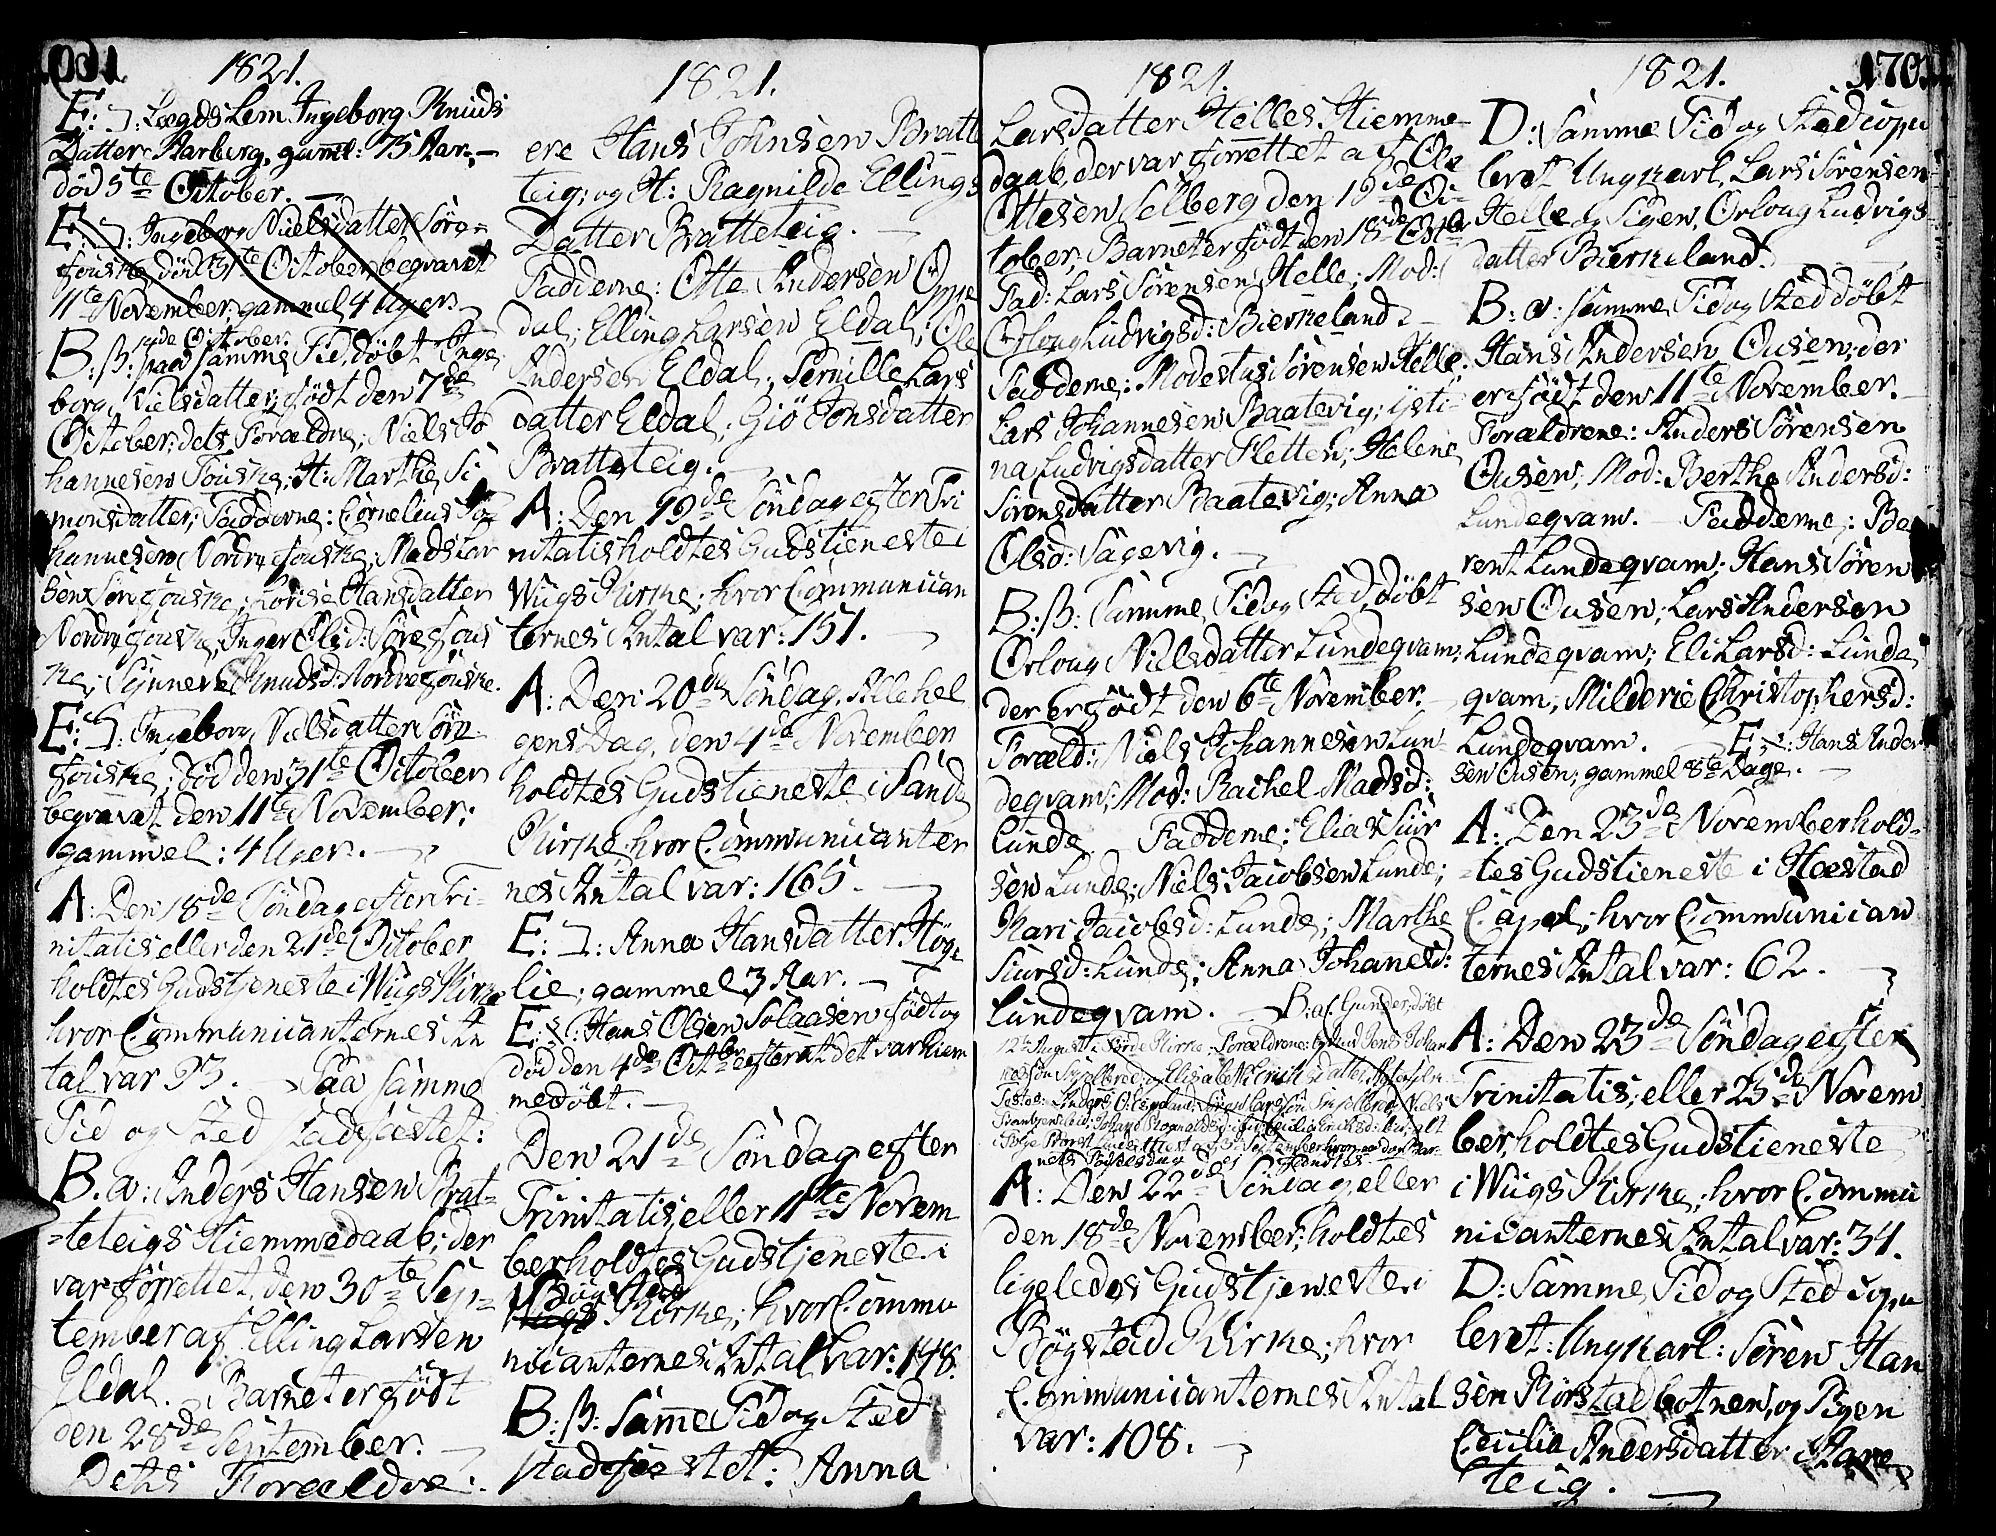 1821.
E: Lægds Lem Ingeborg Knuds
Datter Aarberg, gaml: 75 Aar. —
död 5te October. —
E: Ingeborg Nielsdatter Söre
fouske död 31te October, begravet
11te November, gammel 4 Uger.
14de October.
B: ß: paa samme Tid, döbt Inge
borg Nielsdatter, födt den 7de
October, dets Forældre; Niels Jo
hannesen Fouske, H: Marthe Si
monsdatter; Fadderne: Cornelius Jo
hannesen Nordre fouske, Mads Lar
sen Söre fouske; Lovise Hansdatter
Nordre fouske, Inger Olsd: Söre fous
ke; Synneve Knudsd: Nordre fouske.
E: Ingeborg Nielsdatter Söre
fouske; död den 31te October
begravet den 11te November;
gammel: 4 Uger. —
A: Den 18de Söndag efter Tri-
nitatis eller den 21de October
holdtes Gudstjeneste i Wiigs Kirke
hvor Communicanternes An
tal var 93. — Paa samme
Tid og Sted stadfæstet:
B. a: Anders Hansen Brat-
=teteigs Hiemmedaab; der
var forrettet, den 30te Sep=
tember af Elling Larsen
Eldal. Barnet er födt
den 28de September. —
Dets Forældre:
1821.
ere Hans Johnsen Bratte
teig; og H: Ragnilde Ellings
Datter Bratteteig. —
Fadderne: Otte Andersen Oppe
dal; Elling Larsen Eldal; Ole
Andersen Eldal; Pernille Lars
datter Eldal; Giö Jonsdatter
Bratteteig. —
A: Den 19de Söndag efter Tri
nitatis holdtes Gudstieneste i
Wiigs Kirke; hvor Communican
ternes Antal var: 151. —
A: Den 20de Söndag, Allehel
gens Dag, den 4de November
holdtes Gudstieneste i Sande
Kirke, hvor Communicanter
nes Antal var: 165. —
E: Anna Hansdatter Höge
lie; gammel 3 Aar. —
E: Hans Olsen Solaasen födt og
död den 4de Octbr efterat det var hiem
medöbt. —
Den 21de Söndag efter
Trinitatis, eller 11te Novem
ber holdtes Gudstjeneste i
Bögstad
Kirke; hvor Commu
nicanternes Antal var: 148.
B: ß: Samme Tid og Sted
stadfæstet: Anna
1821.
Larsdatter Helles Hiemme-
daab, der var forrettet af Ole
Ottesen Selberg den 19de Oc-
tober, Barnet er födt den 18de Octo
Fad: Lars Sörensen Helle; Mod:
Orloug Ludvigsd: Bierkeland. —
Fadderne: Modestus Sörensen Helle.
Lars Johannesen Baatevig; Isti-
na Ludvigsdatter Fletten; Helene
Sörensdatter Baatevig; Anna
Olsd: Sagevig. —
B: ß: Samme Tid og Sted, döbt
Orloug Nielsdatter Lundeqvam;
der er födt den 6te November. —
Foræld: Niels Johannesen Lun-
deqvam; Mod: Rachel Madsd:
Lunde. Fadderne: Elias Siur
sen Lunde; Niels Jacobsen Lunde;
Kari Jacobsd: Lunde; Marthe
Siursd: Lunde; Anna Johanesd:
Lundeqvam. — B: a: Gunder, döbt
12te August i Förde Kirke. Forældrene:
A: Den 22de Söndag, eller
den 18de November; holdtes
ligeledes Gudstjeneste i
Bögstad Kirke; hvor
Communicanternes Antal
var: 108. —
1821.
170
D: Samme Tid og Sted copu
leret Ungkarl, Lars Sörensen
Helle og Pigen, Orloug Ludvigs-
datter Bierkeland. —
B: a: samme Tid og Sted döbt
Hans Andersen Ousen; der
er födt den 11te November. —
Forældrene: Anders Sörensen
Ousen, Mod: Berthe Andersd:
Lundeqvam. — Fadderne: Be
rent Lundeqvam; Hans Sören
sen Ousen; Lars Andersen
Lundeqvam; Eli Larsd: Lunde
qvam; Milderie Christophersd:
Lundeqvam. E: Hans Ander
sen Ousen; gammel 8te Dage. —
A: Den 23de November hold-
=tes Gudstieneste i Hæstad
Capel; hvor Communican
ternes Antal var: 62. —
A: Den 23de Söndag efter
Trinitatis; eller 25de Novem
ber, holdtes Gudstieneste
i Wiigs Kirke; hvor Commu
nicanternes Antal var: 34.
D: Samme Tid og Sted copu
leret: Ungkarl: Sören Han
sen Rörstadbotnen, og Pigen
Cecilia Andersdatter Aare
teig. —